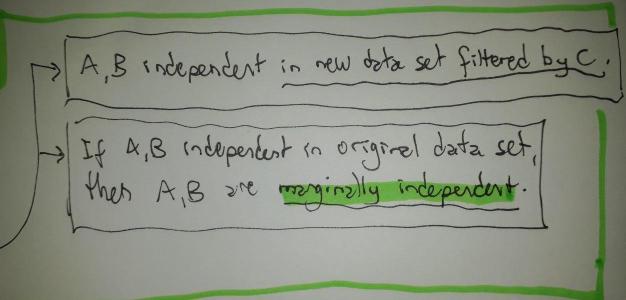 A,B independent in new data set filtered by C.
If A,B independent in original data set,
then A,B are marginally independent.